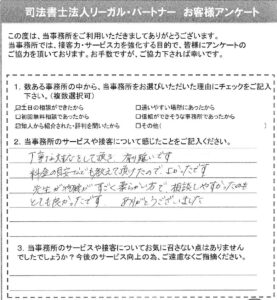 司法書士法人リーガル・パートナー お客様アンケート
この度は、当事務所をご利用いただきましてありがとうございます。
当事務所では、接客力・サービス力を強化する目的で、皆様にアンケートの
ご協力を頂いております。お手数ですが、ご協力下されば幸いです。
1. 数ある事務所の中から、当事務所をお選びいただいた理由にチェックをご記入
下さい。(複数選択可)
☑土日の相談ができたから □通いやすい場所にあったから
□初回無料相談であったから □信頼ができそうな事務所であったから
☑知人から紹介された・評判を聞いたから □その他(
2. 当事務所のサービスや接客について感じたことをご記入ください。
丁寧な対応をして頂き、有り難いです
料金の目安なども教えて頂けたので、よかったです
先生が物腰がすごく柔らかい方で相談しやすかったのも
とても良かったです ありがとうございました
3. 当事務所のサービスや接客についてお気に召さない点はありません
でしたでしょうか?今後のサービス向上の為、ご遠慮なくご指摘ください。